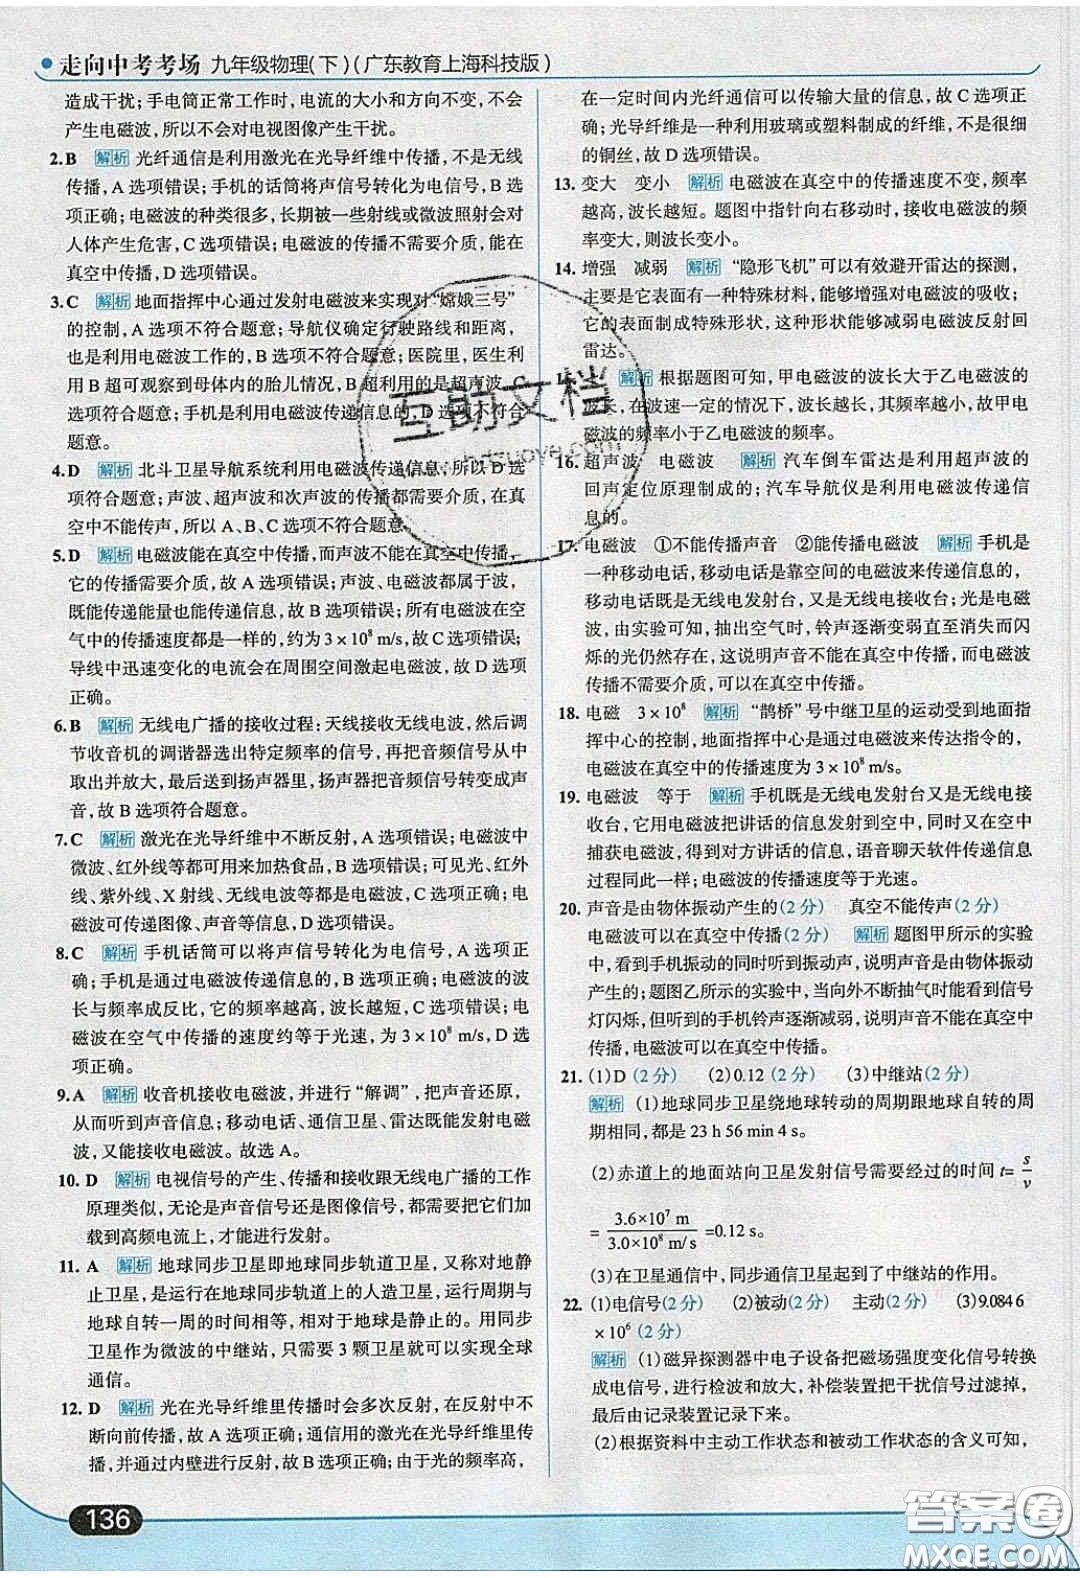 走向中考考场 九年级物理(下)(广东教育上海科技版)
造成干扰;手电筒正常工作时,电流的大小和方向不变,不会
产生电磁波,所以不会对电视图像产生干扰。
2.B 解析 光纤通信是利用激光在光导纤维中传播,不是无线
传播,A选项错误;手机的话筒将声信号转化为电信号,B选
项正确;电磁波的种类很多,长期被一些射线或微波照射会对
人体产生危害,C选项错误;电磁波的传播不需要介质,能在
真空中传播,D选项错误。
3.C 解析 地面指挥中心通过发射电磁波来实现对“嫦娥三号”
的控制,A选项不符合题意;导航仪确定行驶路线和距离,
也是利用电磁波工作的,B选项不符合题意;医院里,医生利
用B超可观察到母体内的胎儿情况,B超利用的是超声波,C
选项符合题意;手机是利用电磁波传递信息的,D选项不符合
题意。
4.D 解析 北斗卫星导航系统利用电磁波传递信息,所以D选
项符合题意;声波、超声波和次声波的传播都需要介质,在真
空中不能传声,所以A、B、C选项不符合题意。
5.D 解析 电磁波能在真空中传播,而声波不能在真空中传播,
它的传播需要介质,故A选项错误;声波、电磁波都属于波,
既能传递能量也能传递信息,故B选项错误;所有电磁波在空
气中的传播速度都是一样的,约为3×10⁸ m/s,故C选项错误;
导线中迅速变化的电流会在周围空间激起电磁波,故D选项
正确。
6.B 解析 无线电广播的接收过程:天线接收无线电波,然后调
节收音机的调谐器选出特定频率的信号,再把音频信号从中
取出并放大,最后送到扬声器里,扬声器把音频信号转变成声
音,故B选项符合题意。
7.C 解析 激光在光导纤维中不断反射,A选项错误;电磁波中
微波、红外线等都可用来加热食品,B选项错误;可见光、红外
线、紫外线、X射线、无线电波等都是电磁波,C选项正确;电
磁波可传递图像、声音等信息,D选项错误。
8.C 解析 手机话筒可以将声信号转化为电信号,A选项正
确;手机是通过电磁波传递信息的,B选项正确;电磁波的波
长与频率成反比,它的频率越高,波长越短,C选项错误;电
磁波在空气中传播的速度约等于光速,为3×10⁸ m/s,D选
项正确。
9.A 解析 收音机接收电磁波,并进行“解调”,把声音还原,
从而听到声音信息;移动电话、通信卫星、雷达既能发射电磁
波,又能接收电磁波。故选A。
10.D 解析 电视信号的产生、传播和接收跟无线电广播的工作
原理类似,无论是声音信号还是图像信号,都需要把它们加
载到高频电流上,才能进行发射。
11.A 解析 地球同步卫星即地球同步轨道卫星,又称对地静
止卫星,是在地球同步轨道上的人造卫星,运行周期与
地球自转一周的时间相等,相对于地球是静止的。用同步
卫星作为微波的中继站,只需要3颗卫星就可以实现全球
通信。
12.D 解析 光在光导纤维里传播时会多次反射,在反射中不
断向前传播,故A选项正确;通信用的激光在光导纤维里传
播,并通过内壁进行反射,故B选项正确;由于光的频率高,
在一定时间内光纤通信可以传输大量的信息,故C选项正
确;光导纤维一般是利用玻璃或塑料制成的纤维,不是很细
的铜丝,故D选项错误。
13.变大 变小 解析 电磁波在真空中的传播速度不变,频率
越高,波长越短。题图中指针向右移动时,接收电磁波的频
率变大,则波长变小。
14.增强 减弱 解析 “隐形飞机”可以有效避开雷达的探测,
主要是它表面有一种特殊材料,能够增强对电磁波的吸收;
它的表面制成特殊形状,这种形状能够减弱电磁波反射回
雷达。
解析 根据题图可知,甲电磁波的波长大于乙电磁波的
波长,在波速一定的情况下,波长越长,其频率越小,故甲电
磁波的频率小于乙电磁波的频率。
16.超声波 电磁波 解析 汽车倒车雷达是利用超声波的
回声定位原理制成的;汽车导航仪是利用电磁波传递信
息的。
17.电磁波 ①不能传播声音 ②能传播电磁波 解析 手机是
一种移动电话,移动电话是靠空间的电磁波来传递信息的,
移动电话既是无线电发射台,又是无线电接收台;光是电磁
波,由实验可知,抽出空气时,铃声逐渐变弱直至消失而闪
烁的光仍然存在,这说明声音不能在真空中传播,而电磁波
传播不需要介质,可以在真空中传播。
18.电磁 3×10⁸ 解析 “鹊桥”号中继卫星的运动受到地面指
挥中心的控制,地面指挥中心是通过电磁波来传达指令的,
电磁波在真空中的传播速度为3×10⁸ m/s。
19.电磁波 等于 解析 手机既是无线电发射台又是无线电接
收台,它用电磁波把讲话的信息发射到空中,同时又在空中
捕获电磁波,得到对方讲话的信息,语音聊天软件传递信息
过程同此一样;电磁波的传播速度等于光速。
20.声音是由物体振动产生的(2分) 真空不能传声(2分)
电磁波可以在真空中传播(2分) 解析 题图甲所示的实验
中,看到手机振动的同时听到振动声,说明声音是由物体振动
产生的;题图乙所示的实验中,当向外不断抽气时能看到信号
灯闪烁,但听到的手机铃声逐渐减弱,说明声音不能在真空中
传播,电磁波可以在真空中传播。
21.(1)D(2分) (2)0.12(2分) (3)中继站(2分)
解析 (1)地球同步卫星绕地球转动的周期跟地球自转的周
期相同,都是23 h 56 min 4 s。
(2)赤道上的地面站向卫星发射信号需要经过的时间t=s/v
=3.6×10⁷ m/3.0×10⁸ m/s=0.12 s。
(3)在卫星通信中,同步通信卫星起到了中继站的作用。
22.(1)电信号(2分) (2)被动 主动(2分) (3)9.084 6
×10⁶(2分)
解析 (1)磁异探测器中电子设备把磁场强度变化信号转换
成电信号,然后进行检波和放大,补偿装置把干扰信号过滤掉,
最后由记录装置记录下来。
(2)根据资料中主动工作状态和被动工作状态的含义可知,
136
互助文档
答案圈
MXQE.COM